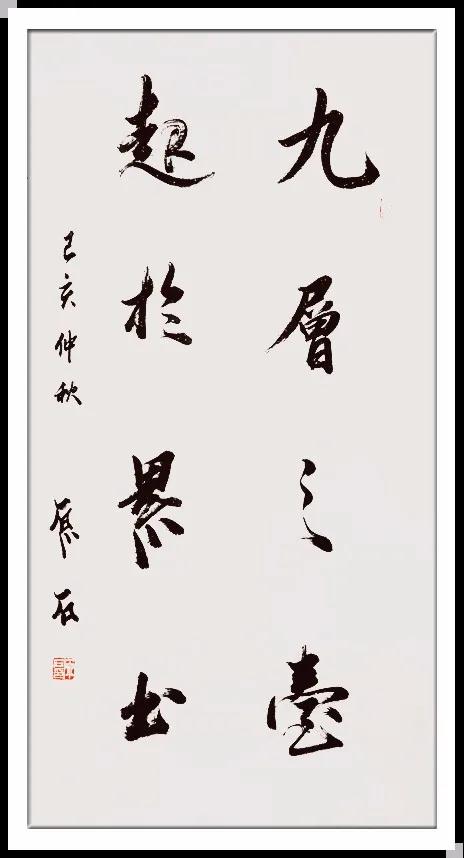 九層之臺
起於累土
己亥仲秋 石